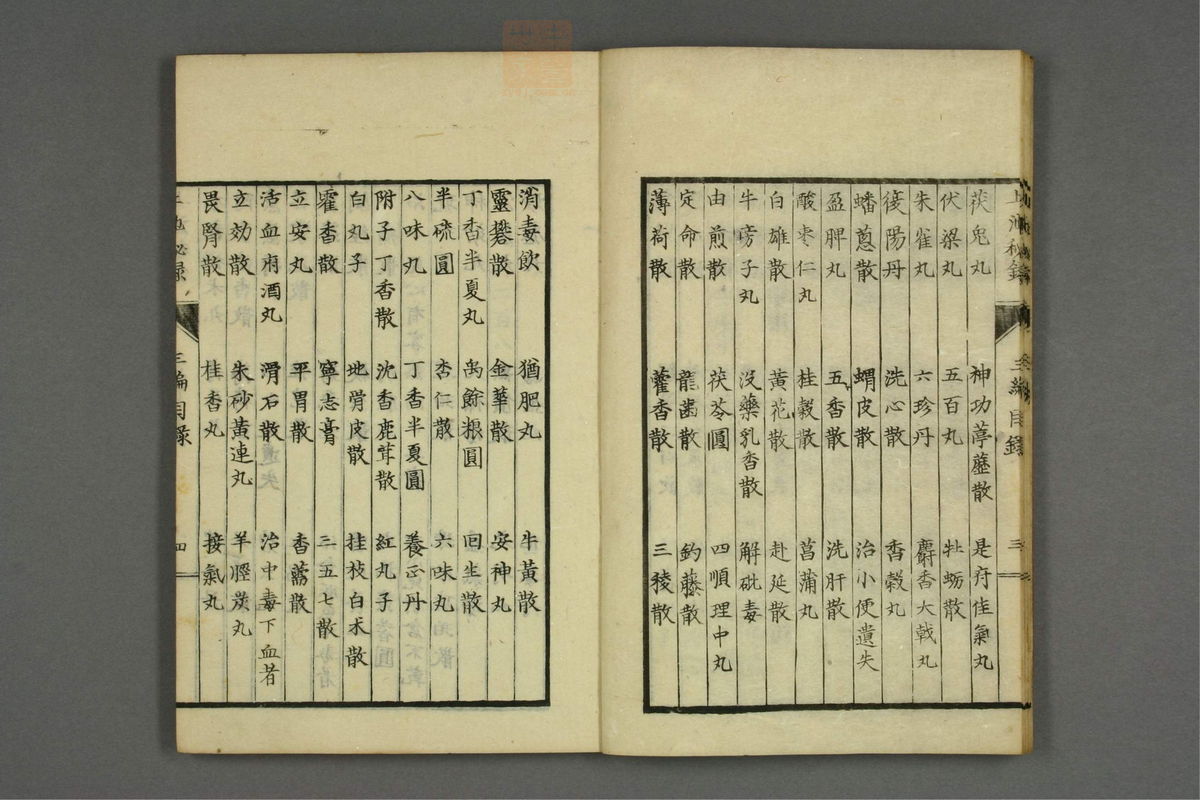 茯兔丸 神功葶藶散 是府佳氣丸
伏梁丸 五百丸 牡蛎散
朱雀丸 六珍丹 麝香大戟丸
復陽丹 洗心散 香榖丸
蟠蔥散 蝟皮散 治小便遺失
盈脾丸 五香散 洗肝散
酸枣仁丸 桂榖散 菖蒲丸
白雄散 黃花散 赴延散
牛蒡子丸 沒藥乳香散 解砒毒
由煎散 茯苓圓 四順理中丸
定命散 龍齒散 釣藤散
薄荷散 藿香散 三稜散
三 三編目録
消毒飲 猶肥丸 牛黃散
靈礬散 金華散 安神丸
丁香半夏丸 禹餘粮圓 回生散
半硫圓 杏仁散 六味丸
八味丸 丁香半夏圓 養正丹
附子丁香散 沈香鹿茸散 紅丸子
白丸子 地骨皮散 桂枝白朮散
藿香散 寧志膏 三五七散
立安丸 平胃散 香薷散
活血府酒丸 滑石散 治中毒下血者
立効散 朱砂黃連丸 羊脛炭丸
畏腎散 桂香丸 接氣丸
三編目录 四